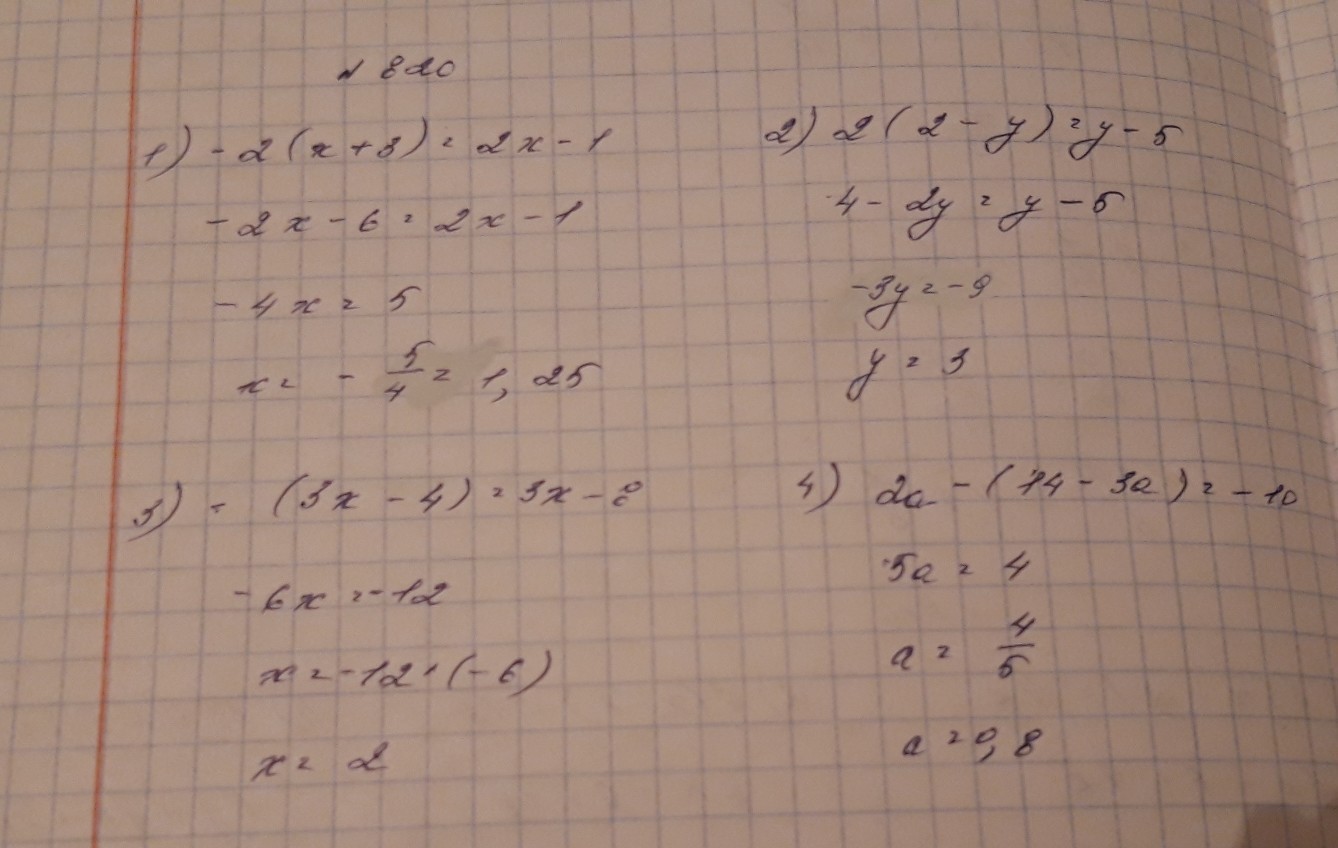 № 820
1) -2(x+3) = 2x-1
-2x-6 = 2x-1
-4x = 5
x = -5/4 = 1,25
2) 2(2-y) = y-5
4-2y = y-5
-3y = -9
y = 3
3) -(3x-4) = 3x-8
-6x = -12
x = -12:(-6)
x = 2
4) 2a-(14-3a) = -10
5a = 4
a = 4/5
a = 0,8